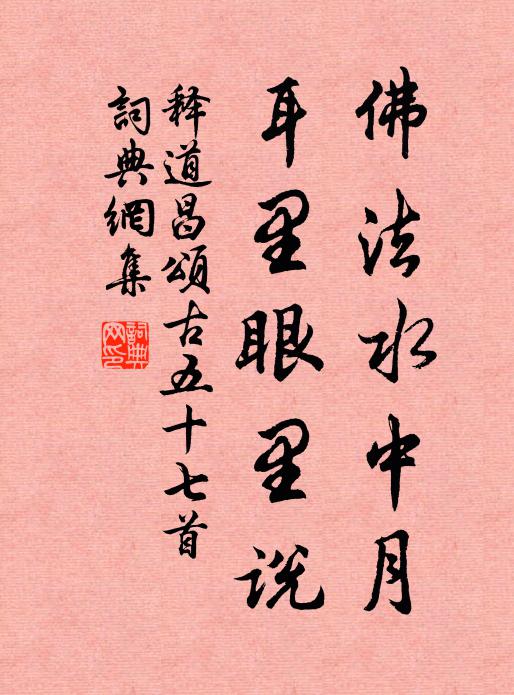 佛法水中月
耳里眼里説
释道昌頌古五十七首
詞典網集
詞典网印